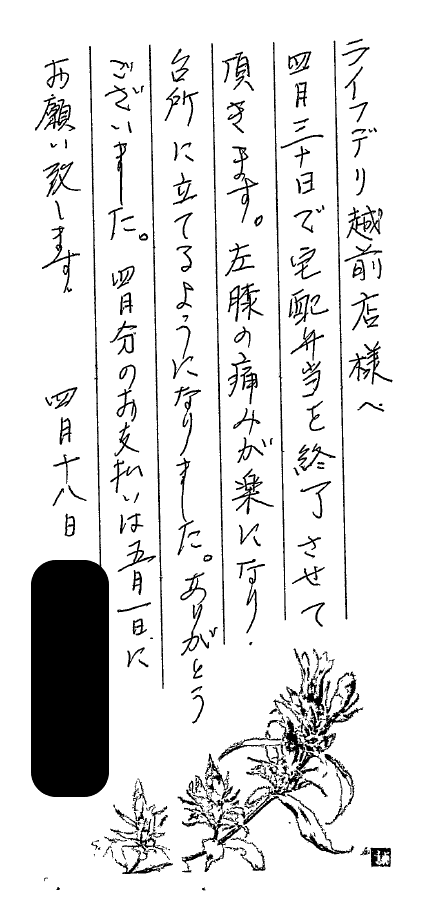 ライフデリ越前店様へ
四月三十日で宅配弁当を終了させて
頂きます。左膝の痛みが楽になり、
台所に立てるようになりました。ありがとう
ございました。四月分のお支払いは五月一日に
お願い致します。
四月十八日